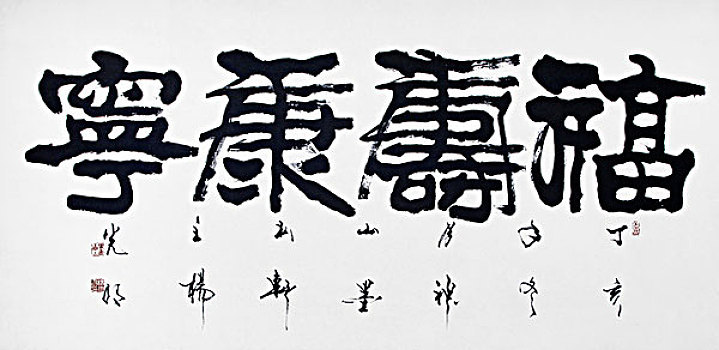 福壽康寧
丁亥
年冬
月
山墨
軒
主楊
光明